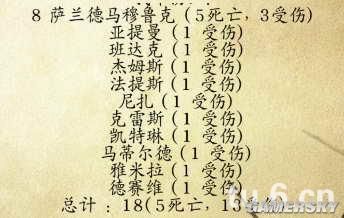 8 萨兰德马穆鲁克(5死亡, 3受伤)
亚提曼(1 受伤)
班达克(1 受伤)
杰姆斯(1 受伤)
法提斯(1 受伤)
尼扎(1 受伤)
克雷斯(1 受伤)
凯特琳(1 受伤)
马蒂尔德(1 受伤)
雅米拉(1 受伤)
德赛维(1 受伤)
总计 : 18(5死亡, 受伤)
tu.6.cn
GAMERSKY